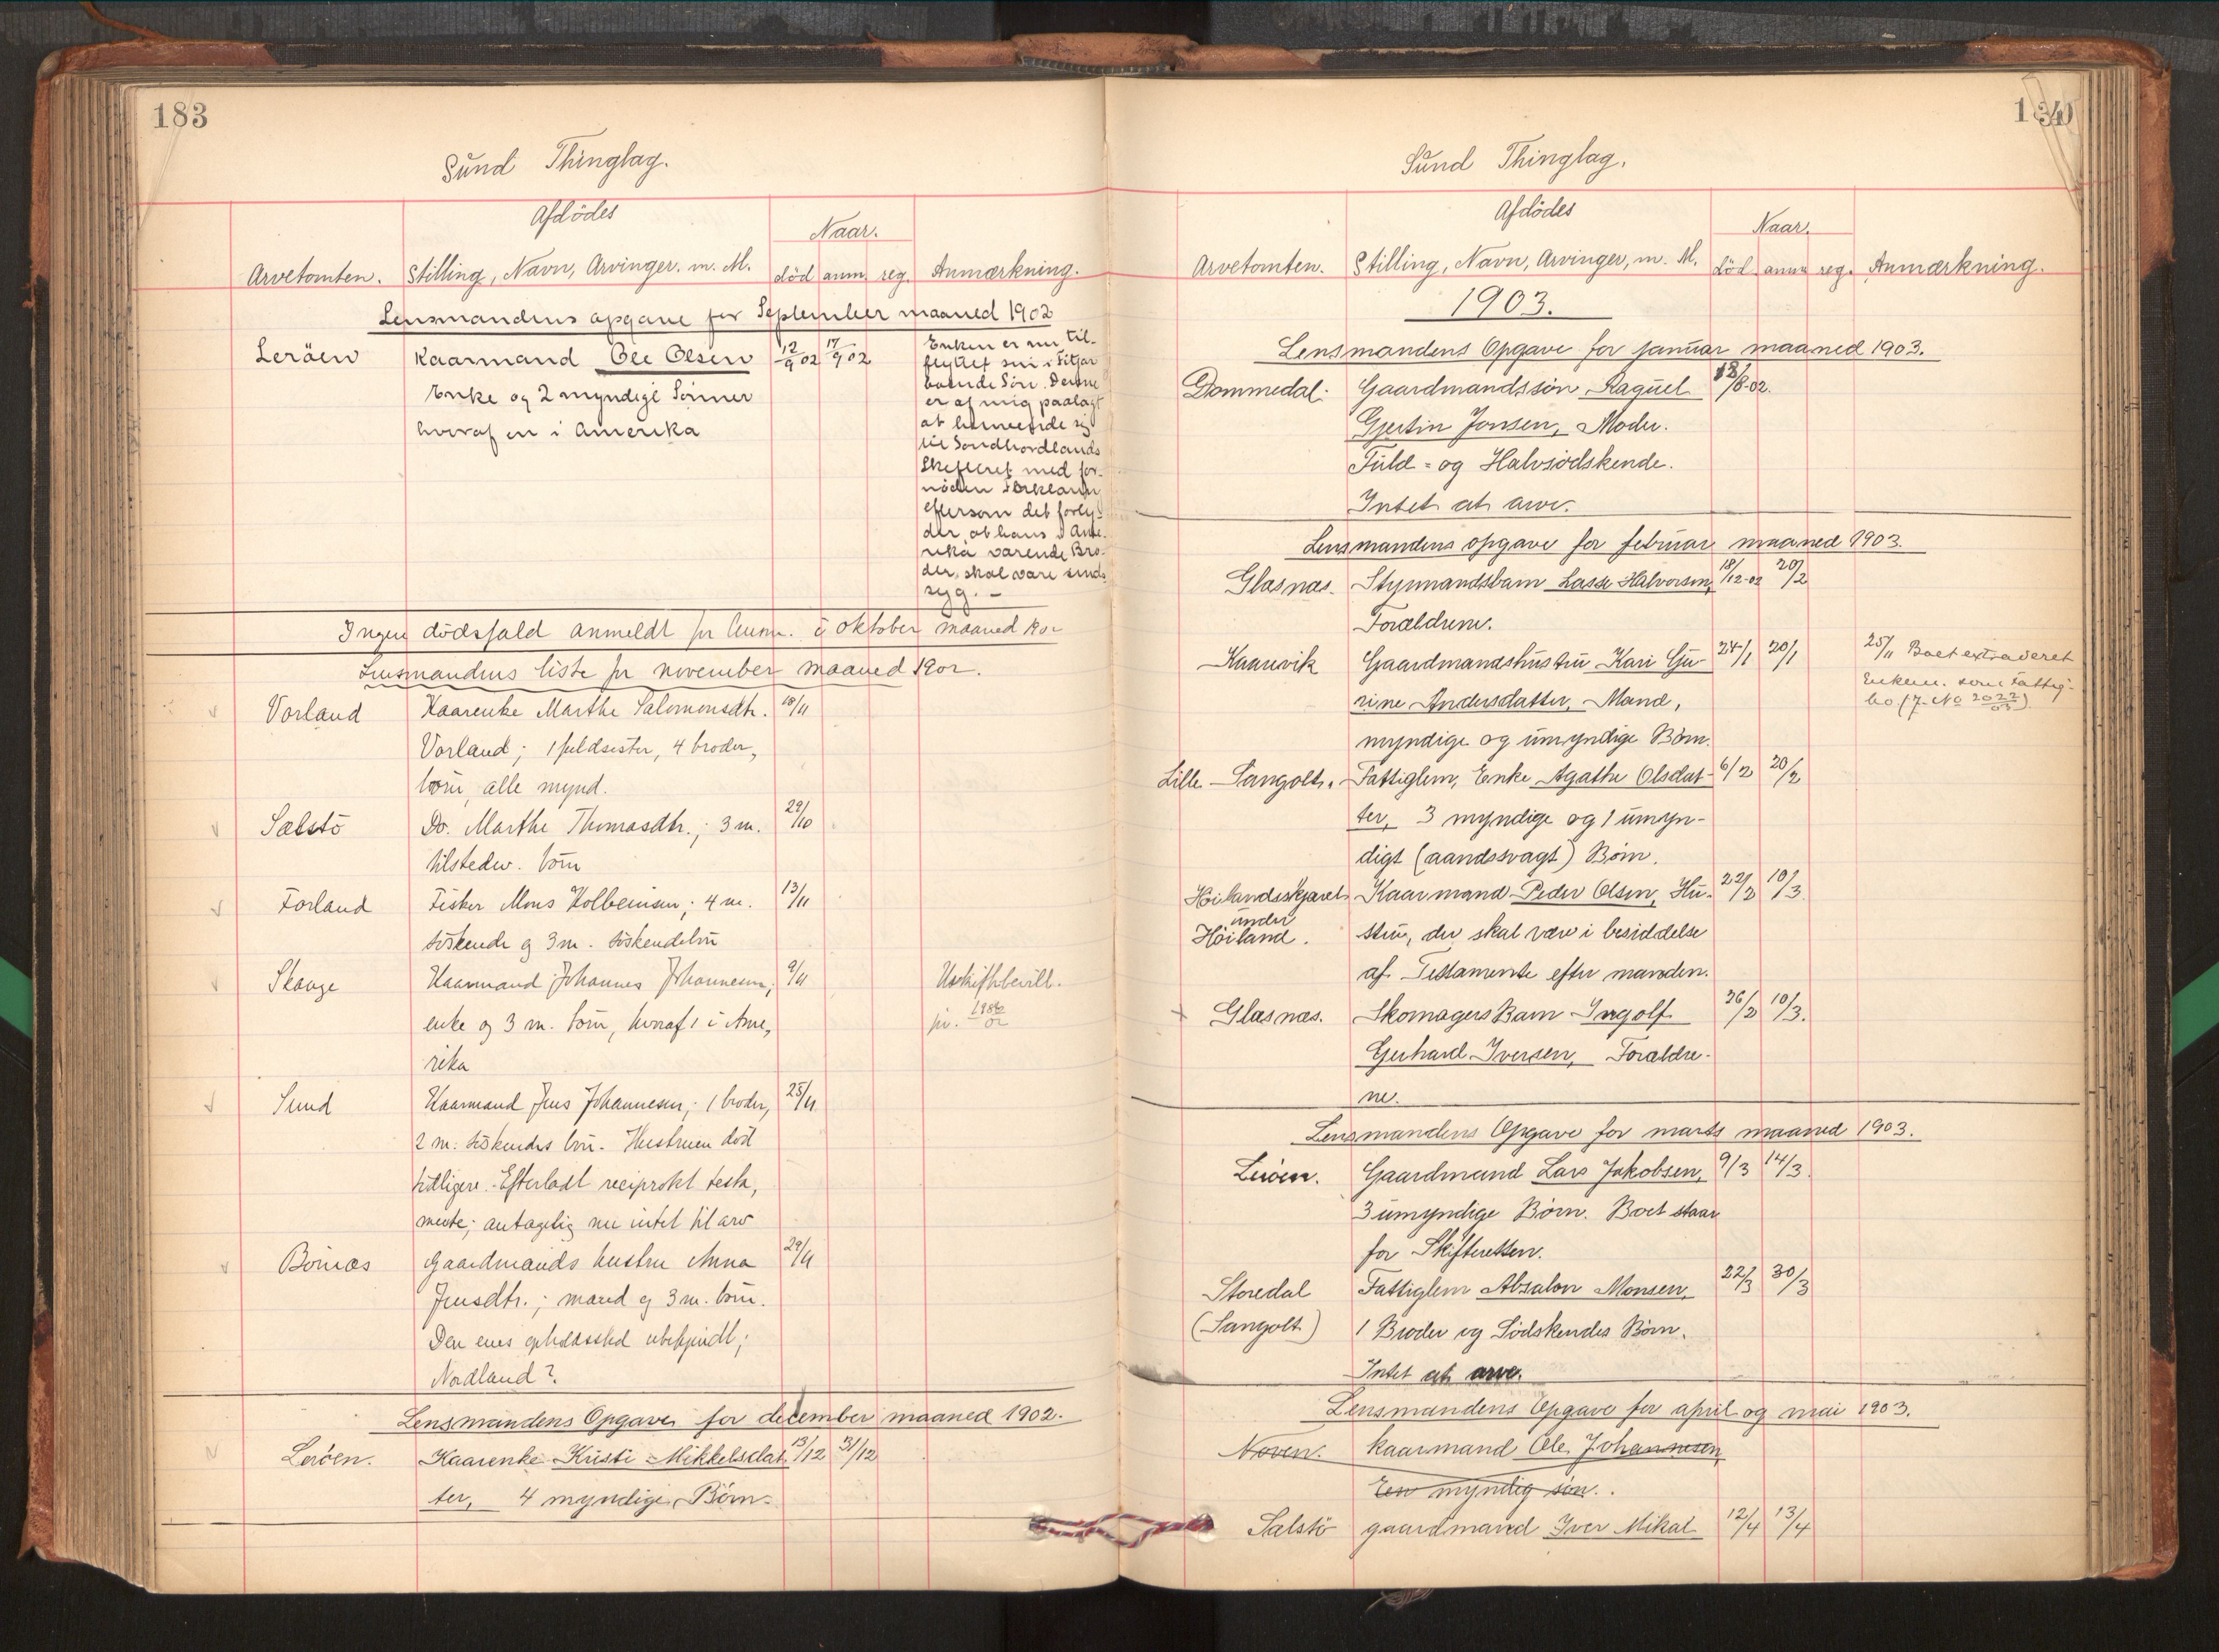 183
Sund Thinglag.
Afdödes
Naar.
Arvetomten. Stilling, Navn, Arvinger. m. M. död anm. reg. Anmærkning.
Lensmandens opgave for September maaned 1902
Leröen Kaarmand Ole Olsen 12/9 02 17/9 02
Enke og 2 myndige Sönner
hvoraf en i Amerika
Enken er nu til-
flyttet sin i Fitjar
boende Sön. Denne
er af mig paalagt
at henvende sig
til Söndhordlands
Skifteret med for-
nöden Forklaring
eftersom det forly-
der, at hans i Ame-
rika værende Bro-
der, skal være sinds-
syg. -
Ingen dödsfald anmeldt for Anm. i oktober maaned 1902
Lensmandens liste for november maaned 1902.
Vorland Kaarenke Marthe Salomonsdtr. 18/11
Vorland; 1 fuldsöster, 4 broder-
börn, alle mynd.
Sælstö Do. Marthe Thomasdtr.; 3 m. 29/10
tilstedev. börn
Forland Fisker Mons Kolbeinsen; 4 m. 13/11
söskende og 3 m. söskendebörn
Skoge Kaarmand Johannes Johannesen; 9/11 Uskiftbevill.
enke og 3 m. börn, hvoraf 1 i Ame, jn. 1986/02
rika
Sund Kaarmand Jens Johannesen; 1 broder, 25/11
2 m. söskendes börn. Hustruen död
tidligere. Efterladt reciprokt testa,
mente; antagelig nu intet til arv
Börnæs Gaardmands hustru Anna 29/11
Jensdtr.; mand og 3 m. börn.
Den enes opholdssted ubekjendt;
Nordland?
Lensmandens Opgave for december maaned 1902.
Leröen. Kaarenke Kristi Mikkelsdat- 13/12 31/12
ter, 4 myndige Börn.
184
Sund Thinglag.
Afdödes
Naar.
Arvetomten. Stilling, Navn, Arvinger, m. M. död anm reg. Anmærkning.
1903.
Lensmandens Opgave for januar maaned 1903.
Dommedal. Gaardmandssön Raguel 18/8-02.
Gjertin Jonsen, Moder.
Fuld- og Halvsödskende.
Intet at arve.
Lensmandens opgave for februar maaned 1903.
Glæsnæs. Styrmandsbarn Lasse Halvorsen, 18/12-02 20/2
Forældrene.
Kaarevik Gaardmandshustru Kari Gu- 24/1 20/1 25/11 Boet extraderet
rine Andersdatter, Mand, Enkem. som Fattig-
myndige og umyndige Börn. bo (J. No 2022/03)
Lille-Sangolt. Fattiglem, Enke Agathe Olsdat- 6/2 20/2
ter, 3 myndige og 1 umyn-
digt (aandssvagt) Börn.
Höilandskjæret Kaarmand Peder Olsen, Hu- 22/2 10/3
under
Höiland. stru, der skal være i besiddelse
af Testamente efter manden.
Glæsnæs. Skomagers Barn Ingolf 26/2 10/3.
Gerhard Iversen, Forældre-
ne.
Lensmandens Opgave for marts maaned 1903.
Leröen. Gaardmand Lars Jakobsen, 9/3 14/3.
3 umyndige Börn. Boet staar
for Skifteretten.
Storedal Fattiglem Absalon Monsen, 22/3 30/3
(Sangolt) 1 Broder og Södskendes Börn.
Intet at arve.
Lensmandens Opgave for april og mai 1903.
Noven. kaarmand Ole Johannesen,
Een myndig sön.
Sælstö gaardmand Iver Mikal 12/4 13/4